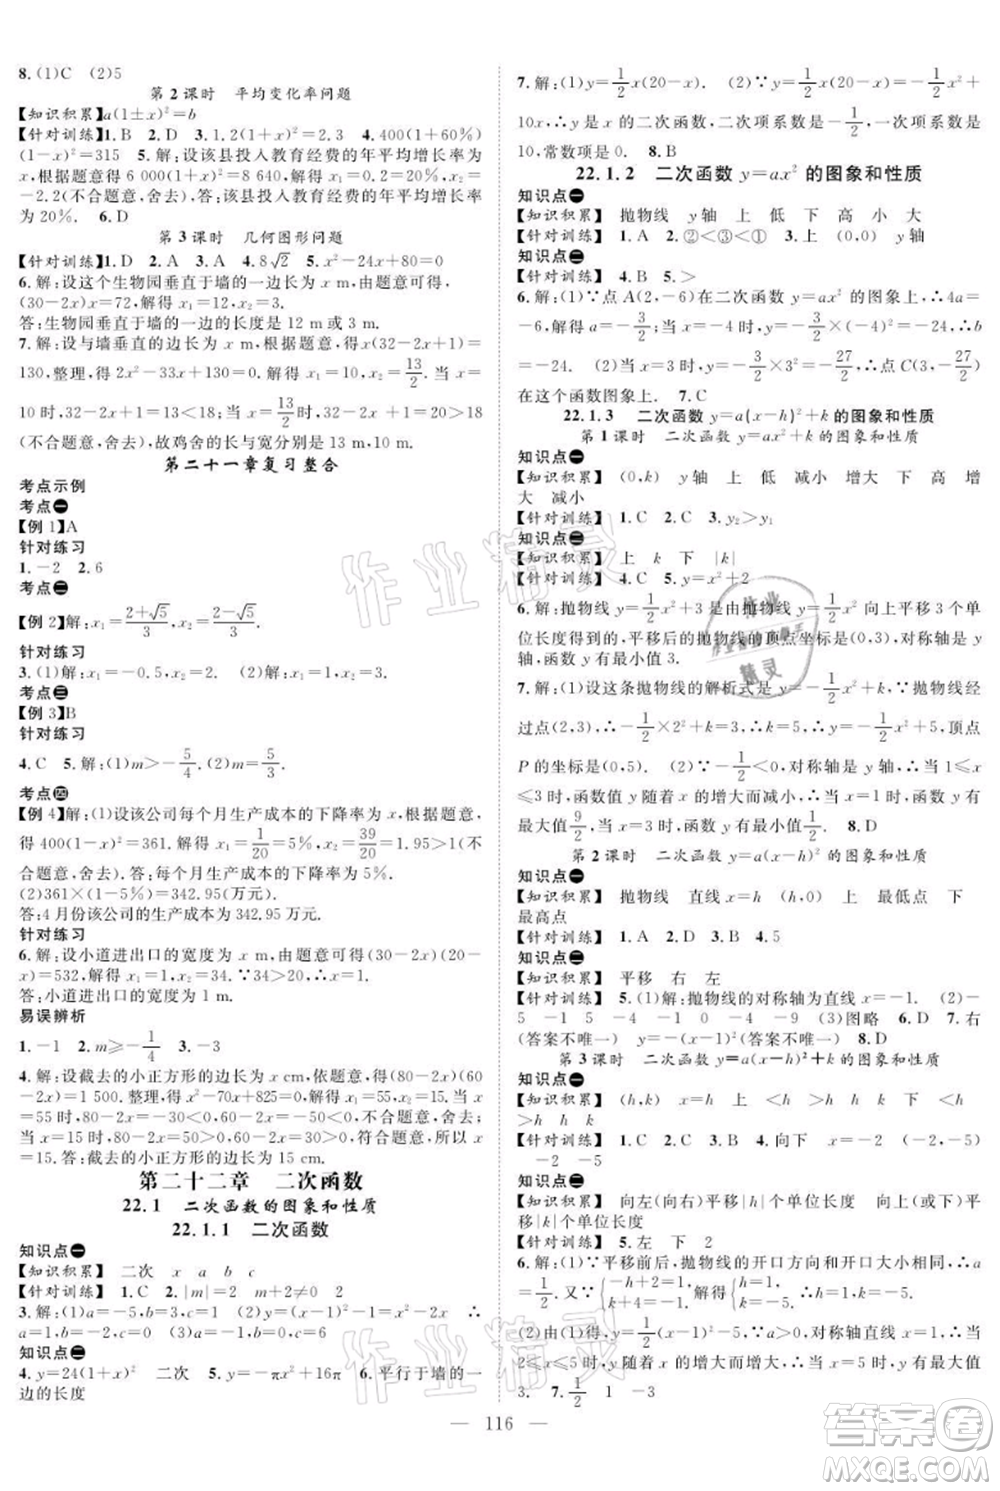 8.(1)C (2)5
第2课时 平均变化率问题
【知识积累】a(1±x)²=b
【针对训练】1.B 2.D 3.1.2(1+x)²=2.3 4.400(1+60%)
(1-x)²=315 5.解:设该县投入教育经费的年平均增长率为
x,根据题意得 6 000(1+x)²=8 640,解得x₁=0.2=20%,x₂=
-2.2(不合题意,舍去).答:该县投入教育经费的年平均增长
率为20%. 6.D
第3课时 几何图形问题
【针对训练】1.D 2.A 3.A 4.8√2 5.x²-24x+80=0
6.解:设这个生物园垂直于墙的一边长为x m,根据题意,得x
(30-2x)=72,解得x₁=12,x₂=3.
答:生物园垂直于墙的一边的长度是12 m或3 m.
7.解:设与墙垂直的边长为x m,根据题意,得x(32-2x+1)=
130,整理,得2x²-33x+130=0.解得x₁=10,x₂=13/2.当x=
10时,32-2x+1=13<18;当x=13/2时,32-2x+1=20>18
(不合题意,舍去),故鸡舍的长与宽分别为13 m,10 m.
第二十一章复习整合
考点示例
考点一
【例1】A
针对练习
1.-2 2.6
考点二
【例2】解:x₁=(2+√5)/3,x₂=(2-√5)/3.
针对练习
3.(1)解:x₁=-0.5,x₂=2. (2)解:x₁=1,x₂=2.
考点三
【例3】B
针对练习
4.C 5.解:(1)m>-5/4.(2)m=2.
考点四
【例4】解:(1)设该公司每个月生产成本的下降率为x,根据题意,
得400(1-x)²=361.解得x₁=1/20=5%,x₂=39/20=1.95>1(不
合题意,舍去).答:每个月生产成本的下降率为5%.
(2)361×(1-5%)=342.95(万元).
答:4月份该公司的生产成本为342.95万元.
针对练习
6.解:设小道进出口的宽度为x m,依题意得(30-2x)(20-
x)=532,解得x₁=1,x₂=34.∵34>30,∴x=1.
答:小道进出口的宽度为1 m.
易误辨析
1.-1 2.m≥-1/4 3.-3
4.解:设截去的小正方形的边长为x cm,依题意,得(80-2x)(60
-2x)=1 500.整理,得x²-70x+825=0,解得x₁=55,x₂=15.当
x=55时,80-2x<0,60-2x<0,不合题意,舍去;
当x=15时,80-2x=50>0,60-2x=30>0,符合题意,所以x
=15.答:截去的小正方形的边长为15 cm.
第二十二章 二次函数
22.1 二次函数的图象和性质
22.1.1 二次函数
知识点一
【知识积累】二次 x a b c
【针对训练】1.C 2.|m|=2 m+2≠0 2
3.解:(1)a=-5,b=3,c=0. (2)y=(x-1)²-1=x²-2x ∴
a=1,b=-2,c=0 (3)a=-1,b=0,c=6
知识点二
4.y=24(1+x)² 二次 5.y=-πx²+16π 6.平行于墙的一
边的长度
7.解:(1)y=1/2x(20-x). (2)∵y=1/2x(20-x)=-1/2x²+
10x,∴y是x的二次函数,二次项系数是-1/2,一次项系数是
10,常数项是0. 8.B
22.1.2 二次函数y=ax²的图象和性质
知识点一
【知识积累】抛物线 y轴 上 低 下 高 小 大
【针对训练】1.A 2.②<③<① 3.上 (0,0) y轴
知识点二
【针对训练】4.B 5.>
6.解:(1)∵点A(2,-6)在二次函数y=ax²的图象上,∴4a=
-6,解得a=-3/2;当x=4时,y=-3/2×4²=-24,∴b
=-24. (2)当x=3时,y=-3/2×3²=-27/2,∴点C(3,-27/2)
在这个函数图象上. 7.C
22.1.3 二次函数y=a(x-h)²+k的图象和性质
第1课时 二次函数y=ax²+k的图象和性质
知识点一
【知识积累】(0,k) y轴 上 低 减小 增大 下 高 增
大 减小
【针对训练】1.C 2.C 3.y₂>y₁
知识点二
【知识积累】上 k 下 |k|
【针对训练】4.C 5.y=x²+2
6.解:抛物线y=1/2x²+3是由抛物线y=1/2x²向上平移3个单
位长度得到的,平移后的抛物线的顶点坐标是(0,3),对称轴是y
轴,函数y=1/2x²+3有最小值3.
7.解:(1)设这条抛物线的解析式是y=-1/2x²+k,∵抛物线经
过点(2,3),∴-1/2×2²+k=3,∴k=5,∴y=-1/2x²+5,顶点
P的坐标是(0,5). (2)∵y=-1/2x²+5,∴在函数上,当1≤x
≤3时,函数值y随x的增大而减小,∴当x=1时,函数y有
最大值9/2;当x=3时,函数y有最小值1/2. 8.D
第2课时 二次函数y=a(x-h)²的图象和性质
知识点一
【知识积累】抛物线 直线x=h (h,0) 上 最低点 下
最高点
【针对训练】1.A 2.A 3.D 4.5
知识点二
【知识积累】平移 右 左
【针对训练】5.(1)解:抛物线的对称轴为直线x=-1. (2)-
5 -1 -1 0 -1 -4 -9 (3)图略 6.D 7.右
(答案不唯一) y=-(x-1)²(答案不唯一) 8.D
第3课时 二次函数y=a(x-h)²+k的图象和性质
知识点一
【知识积累】(h,k) x=h 向上 <h >h 下 <h
>h h k
【针对训练】1.C 2.A 3.D 4.向下 x=-2 (-2,
-5) -2 -5
知识点二
【知识积累】向左(向右)平移|h|个单位长度 向上(或下)平
移|k|个单位长度
【针对训练】5.左 下 2
6.解:(1)∵平移前后,抛物线的开口方向和开口大小相同,∴a
=1/2,∴{-h+2=1, k+4=2. {h=1, k=-2.
(2)由(1)得,y=1/2(x-1)²-2,∴抛物线的对称轴为x=1,∴当
2≤x≤3时,y随x的增大而增大,∴当x=2时,y取最小值-
3. 7.1/2 1 -3
116
作业精灵
作业精灵
答案圈
MXQE.COM